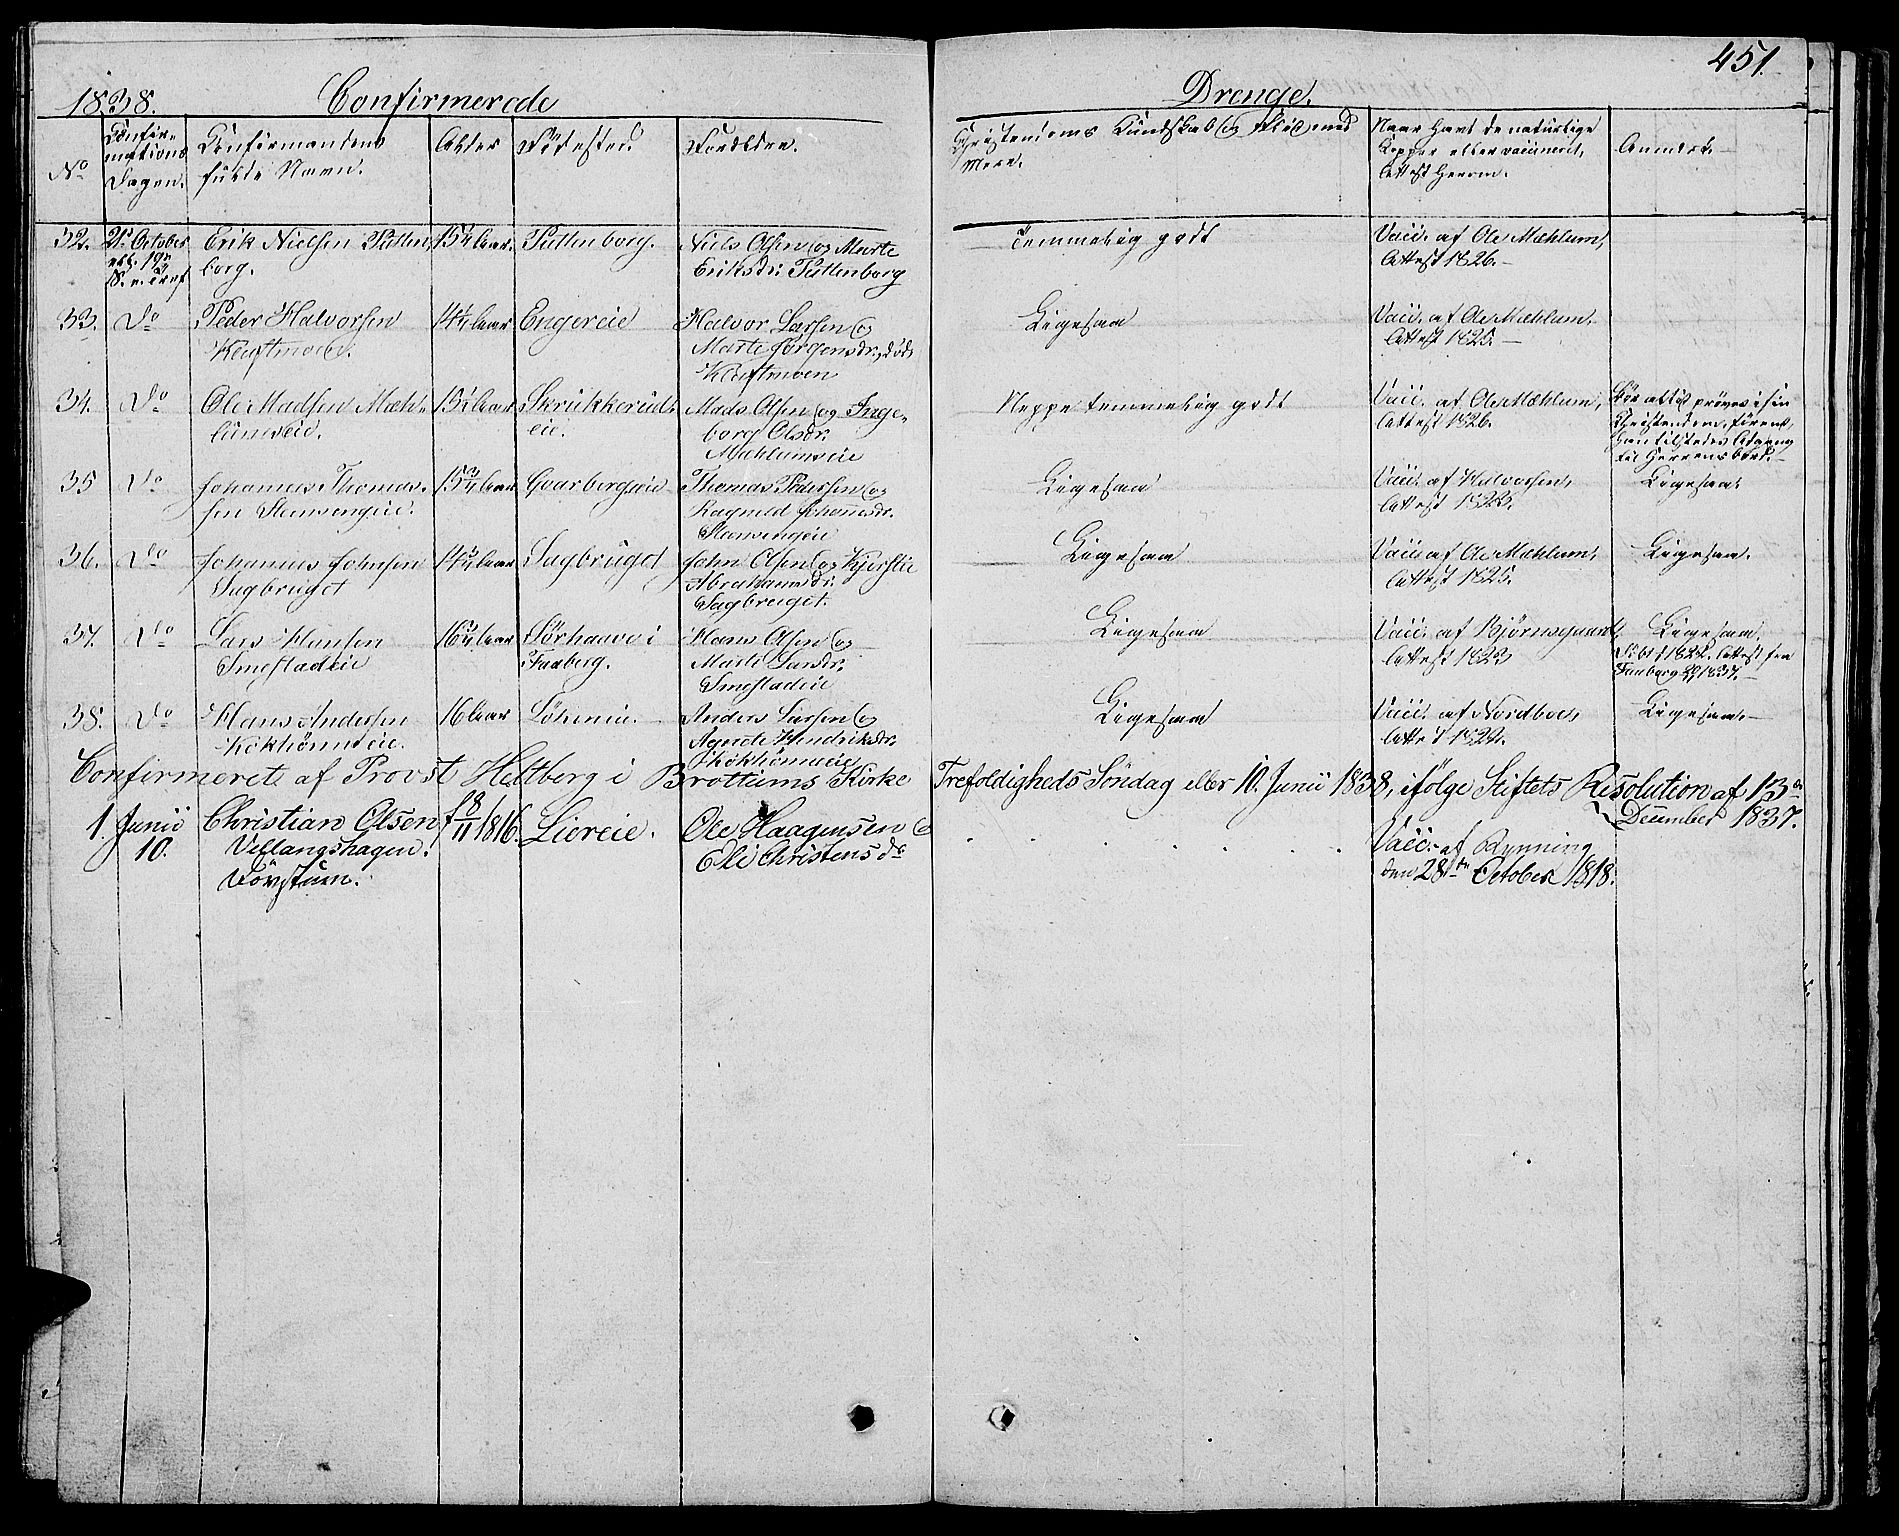 451.
1838. Confirmerede Drenge.
No
Confir-
mations
Dagen.
Confirmandens
fulde Navn.
Alder
Födested.
Forældre.
Christendoms Kundskab og Flid med
Mere.
Naar havt de naturlige
Kopper eller vaccineret,
Attest herom.
Anmærk.
32. 21de October
Erik Nielsen Puttenborg.
Puttenborg.
Niels Olsen og Marte
Eriksdr. Puttenborg
Temmelig godt
Vacc. af Ole Mæhlum,
Attest 1826.
33. Do
Peder Halvorsen
Kluftmoen.
14½ Aar
Engereie
Halvor Larsen og
Marte Jörgensdr., död,
Kluftmoen
Ligesaa
Vacc. af Ole Mæhlum.
Attest 1825.
34. Do
Ole Madsen Mæh-
lumseie.
15½ Aar
Skrukkerud-
eie.
Mads Olsen og Inge-
borg Olsdr.
Mæhlumseie
Neppe temmelig godt
Vacc. af Ole Mæhlum,
Attest 1826.
Bör altid pröves i sin
Christendom, förend
han tilstedes Adgang
til Herrens bord.
35 Do
Johannes Thomas-
sen Stensengeie.
15¾ Aar
Gaarbergseie
Thomas Pedersen og
Ragnild Johannesdr.
Stensengeie
Ligesaa
Vacc. af Halvorsen,
Attest
Ligesaa.
36. Do
Johannes Johnsen
Sagbruget
Sagbruget
John Olsen og Kjerstie
Abrahamsdr.
Sagbruget.
Ligesaa
Vacc. af Ole Mæhlum,
Attest 1825.
Ligesaa.
37. Do
Lars Hansen
Smestadeie
Sörhaave i
Faaberg.
Hans Olsen og
Marte Larsdr.
Smestadeie
Ligesaa
Vacc. af Björnsgaard,
Attest 1823
Ligesaa.
Attest fra
Faaberg 1837.
38. Do
Hans Andersen
16 Aar
Anders Larsen og
Agnete Hendriksdr.
Ligesaa
Vacc. af Nordboe,
Ligesaa.
Confirmeret af Provst Heltberg i Brottums Kirke Trefoldigheds Söndag eller 10. Junii 1838, ifölge Stiftets Resolution af 13de
December 1837.
1. Junii
10.
Christian Olsen
Vellangshagen.
f 18/11 1816.
Liereie.
Ole Haagensen og
Eli Christens dr
Vacc. af Rynning
den 28de October 1818.